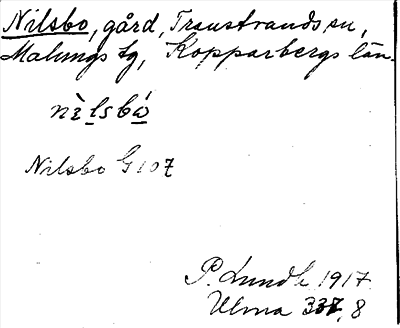 Nilsbo, gård, Transtrands sn,
Malungs tg, Kopparbergs län.
nìlsbó
Nilsbo G107
P. Lundh 1917.
Ulma 337, 8